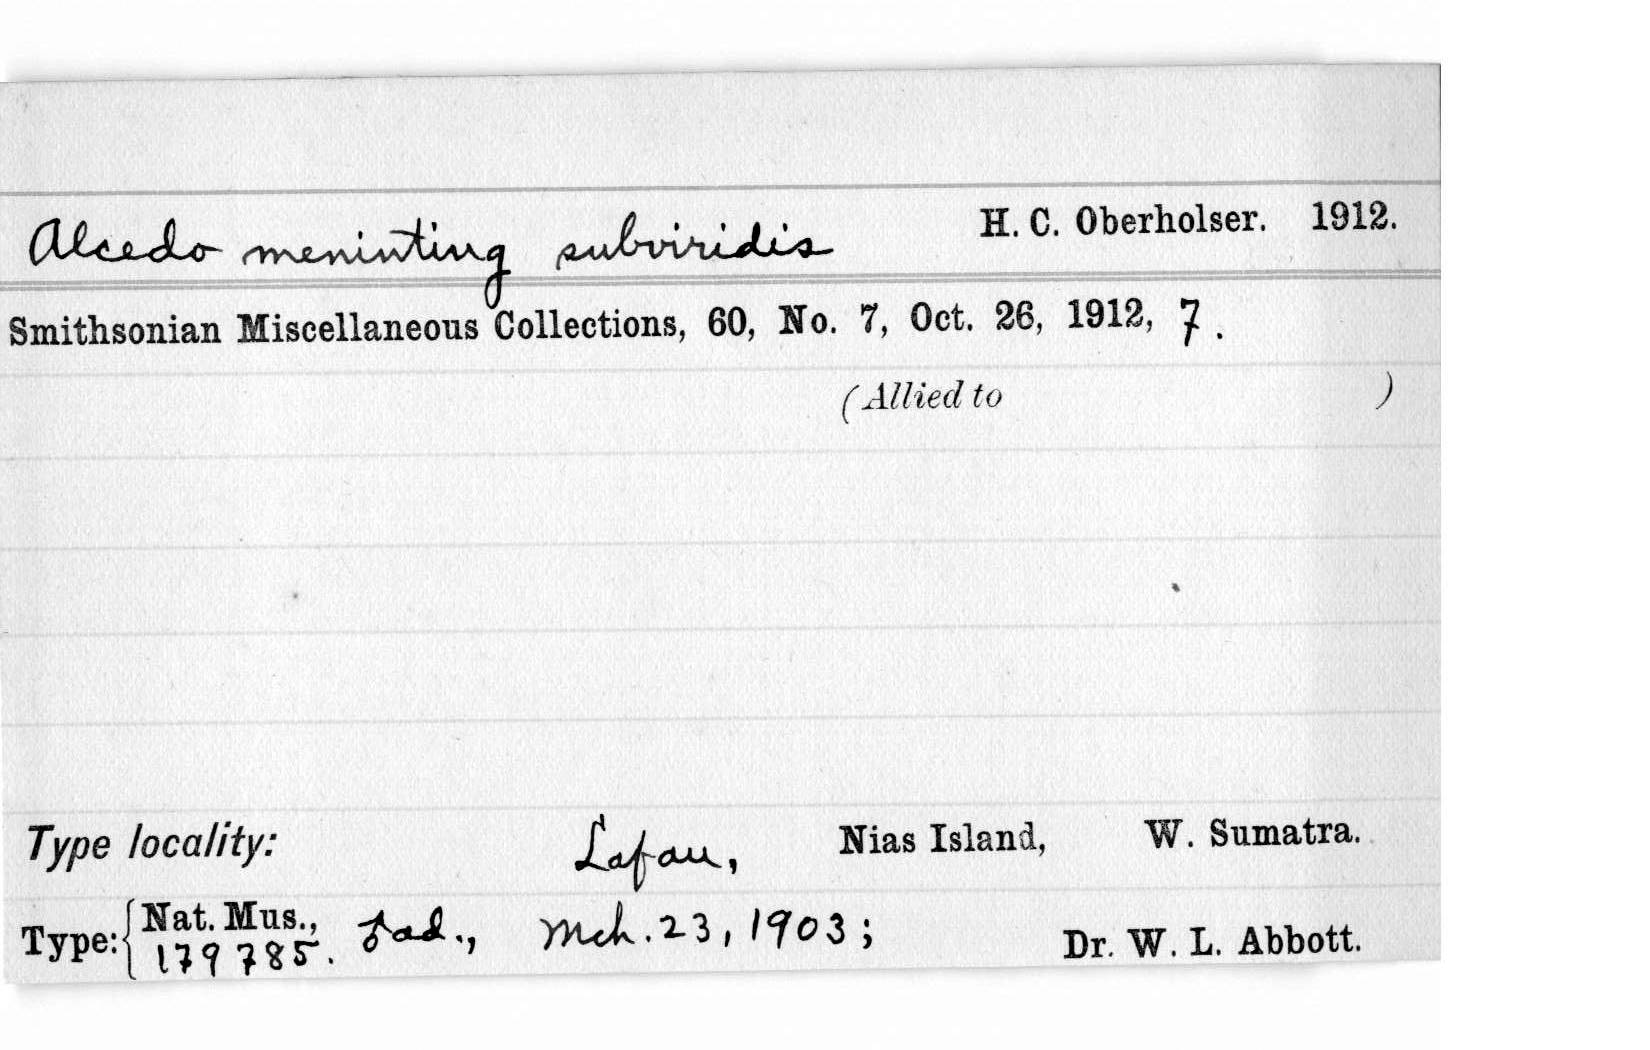 Alcedo meninting subviridis H. C. Oberholser. 1912.
Smithsonian Miscellaneous Collections, 60, No. 7, Oct. 26, 1912, 7.
(Allied to )
Type locality: Lafau, Nias Island, W. Sumatra.
Type: { Nat. Mus., 179785. ♀ ad., Mch. 23, 1903; Dr. W. L. Abbott.